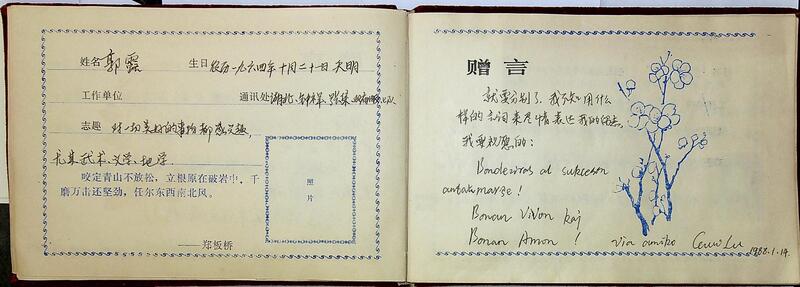 姓名 郭露 生日 农历一九六四年十月二十一日天明
工作单位 通讯处 湖北 钟祥 张集
志趣 对一切美好的事物都感兴趣,
尤其武术、文学、地学
咬定青山不放松,立根原在破岩中,千
磨万击还坚劲,任尔东西南北风。
——郑板桥
照
片
赠言
就要分别了,我不知用什么
样的言词来尽情表达我的
我要祝愿的:
Bondeziros al sukceson
antaŭmarŝe!
Bonan Vivon kaj
Bonan Amon!
via amiko
1988.1.14.